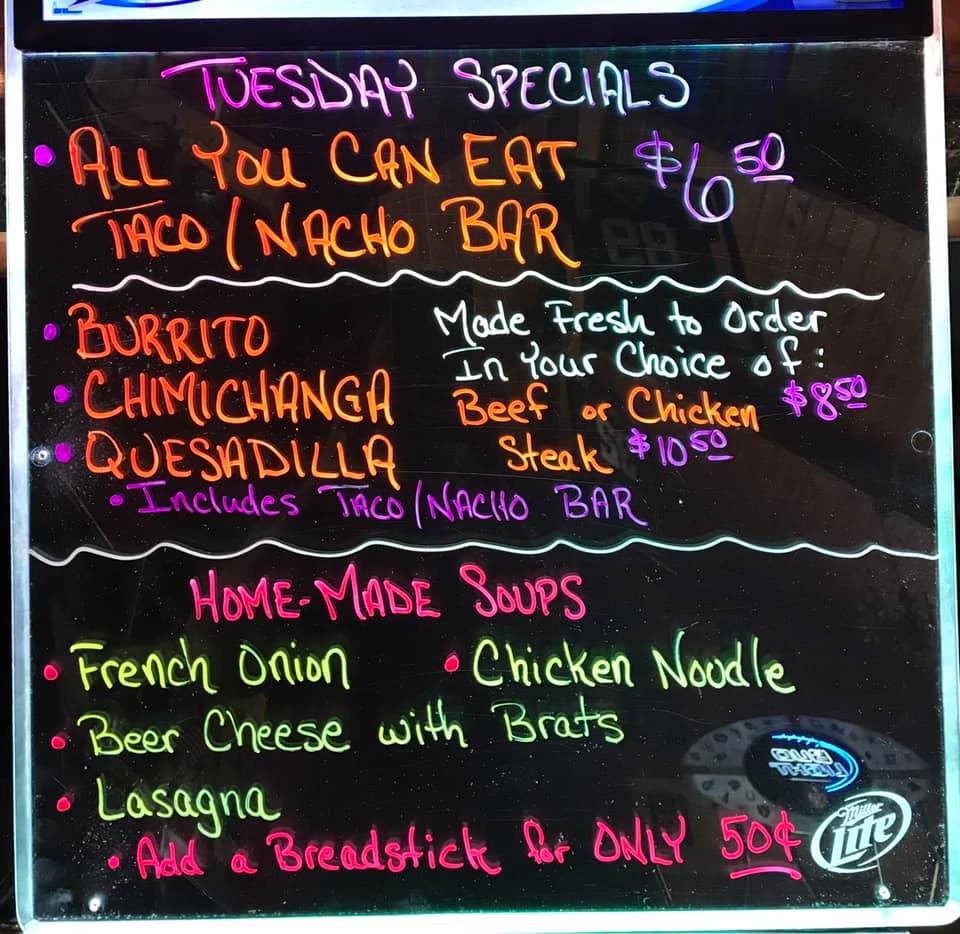 TUESDAY SPECIALS
• ALL YOU CAN EAT $6 50
TACO/NACHO BAR
• BURRITO
• CHIMICHANGA
• QUESADILLA
Made Fresh to Order
In Your Choice of:
Beef or Chicken $8 50
Steak $10 50
• Includes TACO/NACHO BAR
HOME-MADE SOUPS
• French Onion • Chicken Noodle
• Beer Cheese with Brats
• Lasagna
• Add a Breadstick for ONLY 50¢
Miller
Lite